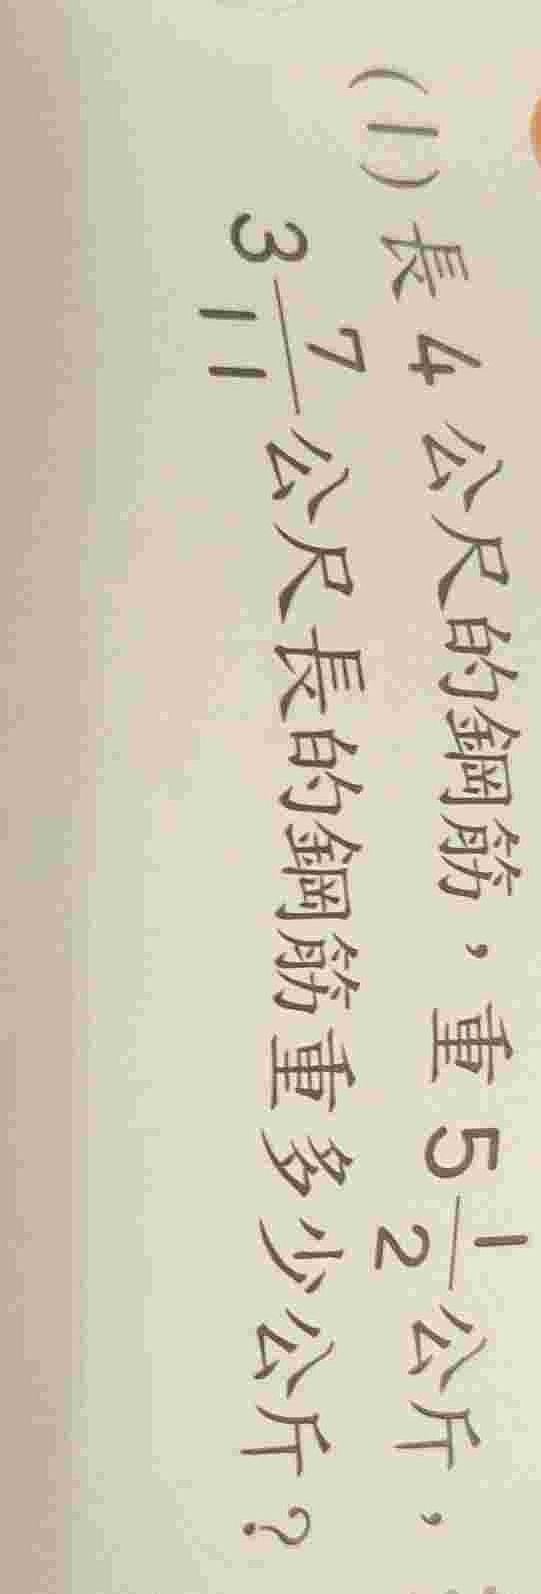 (1)長 4 公尺的鋼筋，重 5 1/2 公斤，
3 7/11 公尺長的鋼筋重多少公斤？